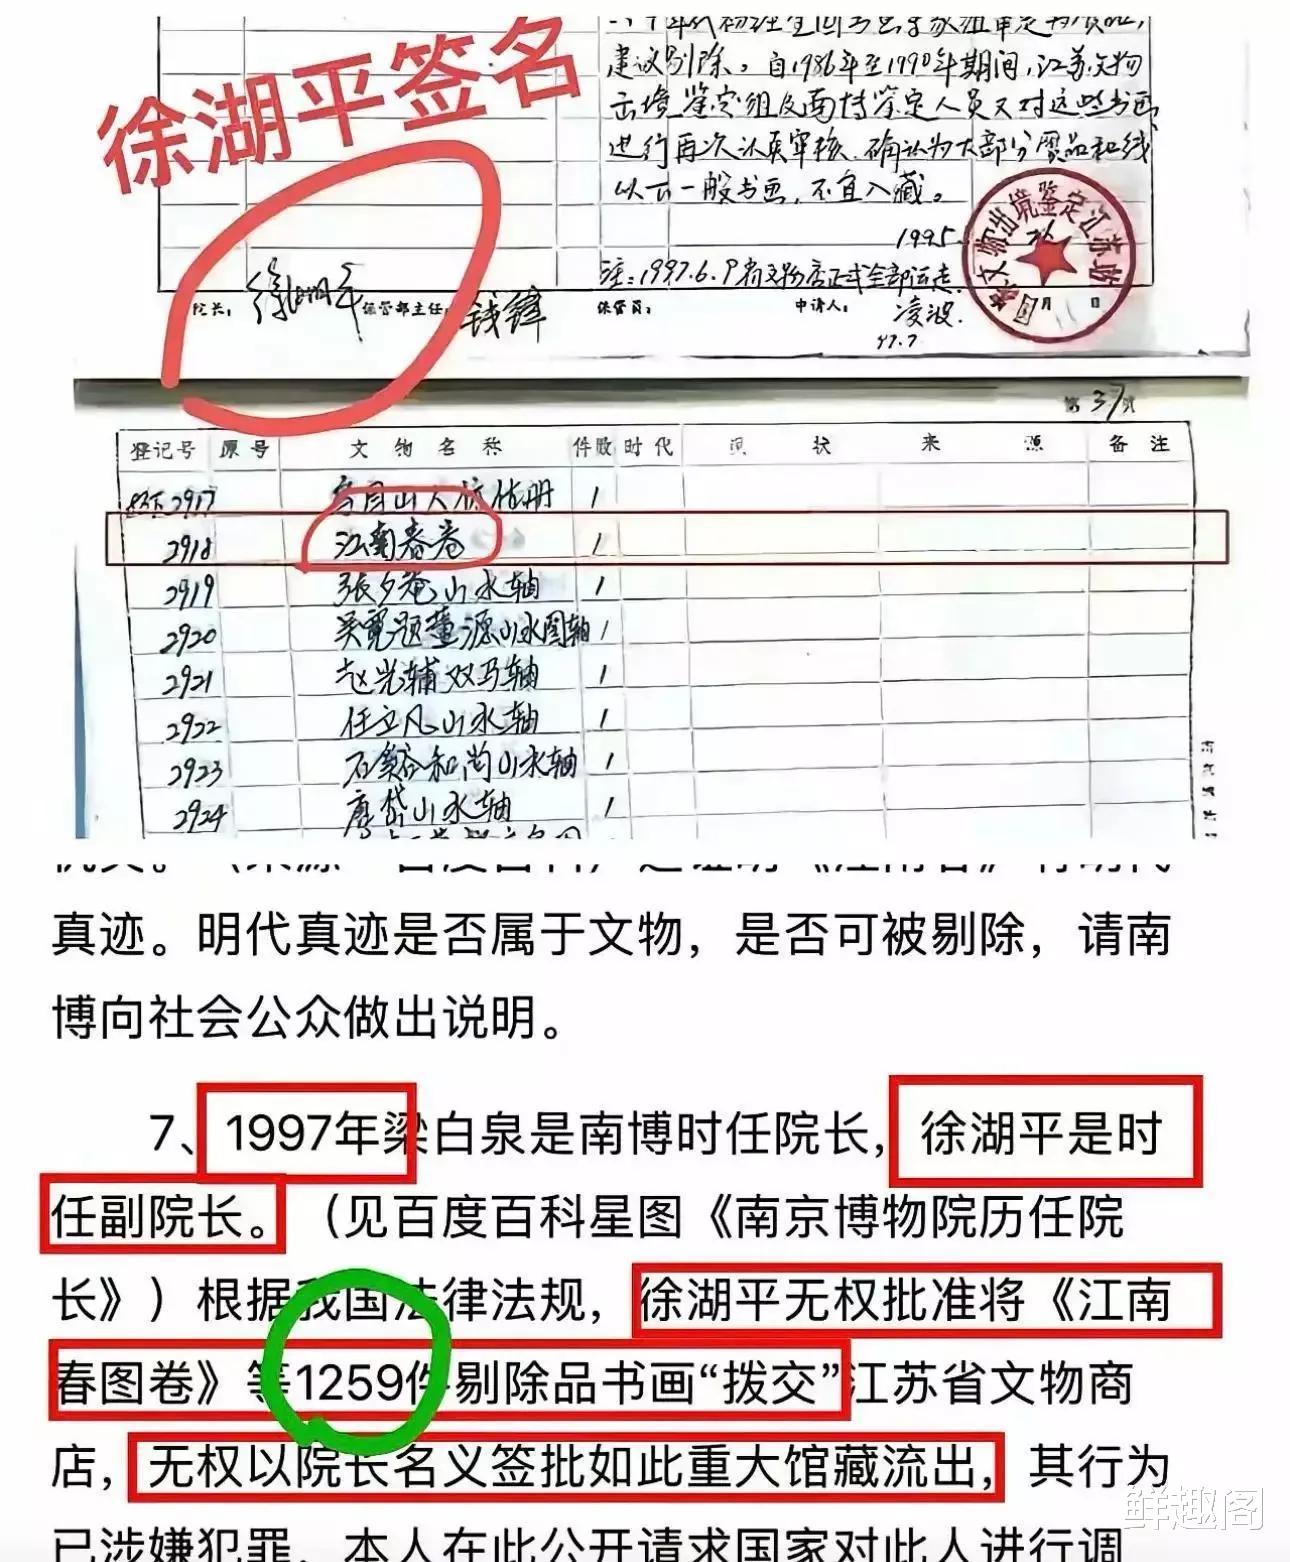 徐湖平签名
建议剔除。自1986年至1990年期间,江苏文物
出境鉴定组及南博鉴定人员又对这些书画
进行再次认真审核、确认为大部分赝品和线
以下一般书画,不宜入藏。
1995
注:1997.6.9
院长: 徐湖平 保管部主任: 钱锋 保管员: 申请人: 凌波.
97.7
文物出境鉴定江苏站
月 日
第37页
登记号 原号 文物名称 件数 时代 现状 来源 备注
2917 1
2918 江南春卷 1
2919 張夕菴山水轴 1
2920 吴寛题董源山水图轴 1
2921 赵光辅双马轴 1
2922 任立凡山水轴 1
2923 石谿和尚山水轴 1
2924 唐岱山水轴 1
真迹。明代真迹是否属于文物,是否可被剔除,请南
博向社会公众做出说明。
7、1997年梁白泉是南博时任院长,徐湖平是时
任副院长。(见百度百科星图《南京博物院历任院
长》)根据我国法律法规,徐湖平无权批准将《江南
春图卷》等1259件剔除品书画“拨交”江苏省文物商
店,无权以院长名义签批如此重大馆藏流出,其行为
已涉嫌犯罪,本人在此公开请求国家对此人进行调
鲜趣阁